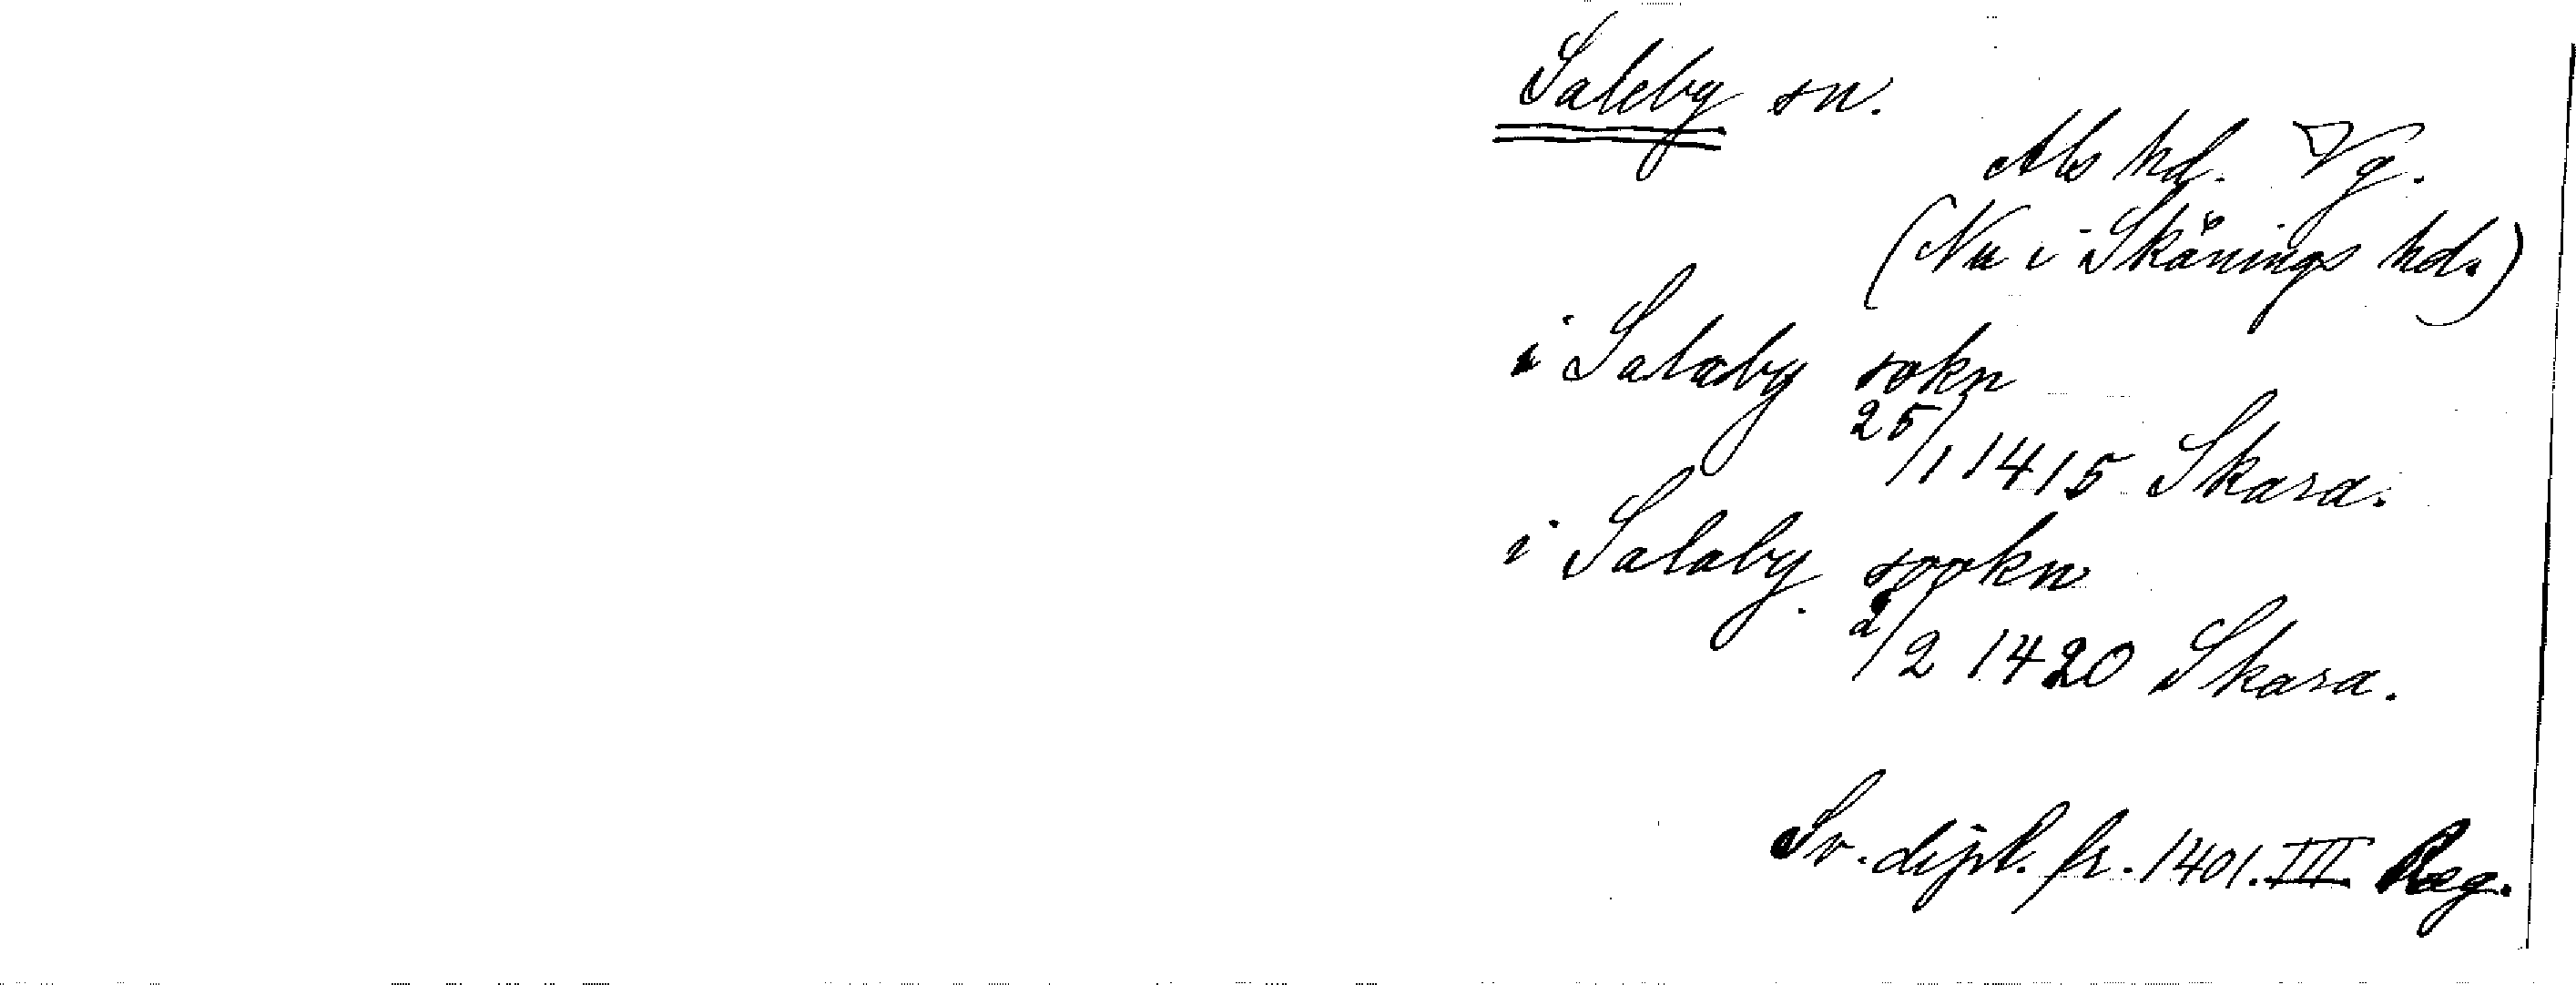 Saleby sn.
Als hd. Vg.
(Nu i Skånings hd.)
i Salaby sokn
25/1 1415 Skara.
i Salaby sookn
2/2 1420 Skara.
Sv. dipl. fr. 1401. III. Reg.